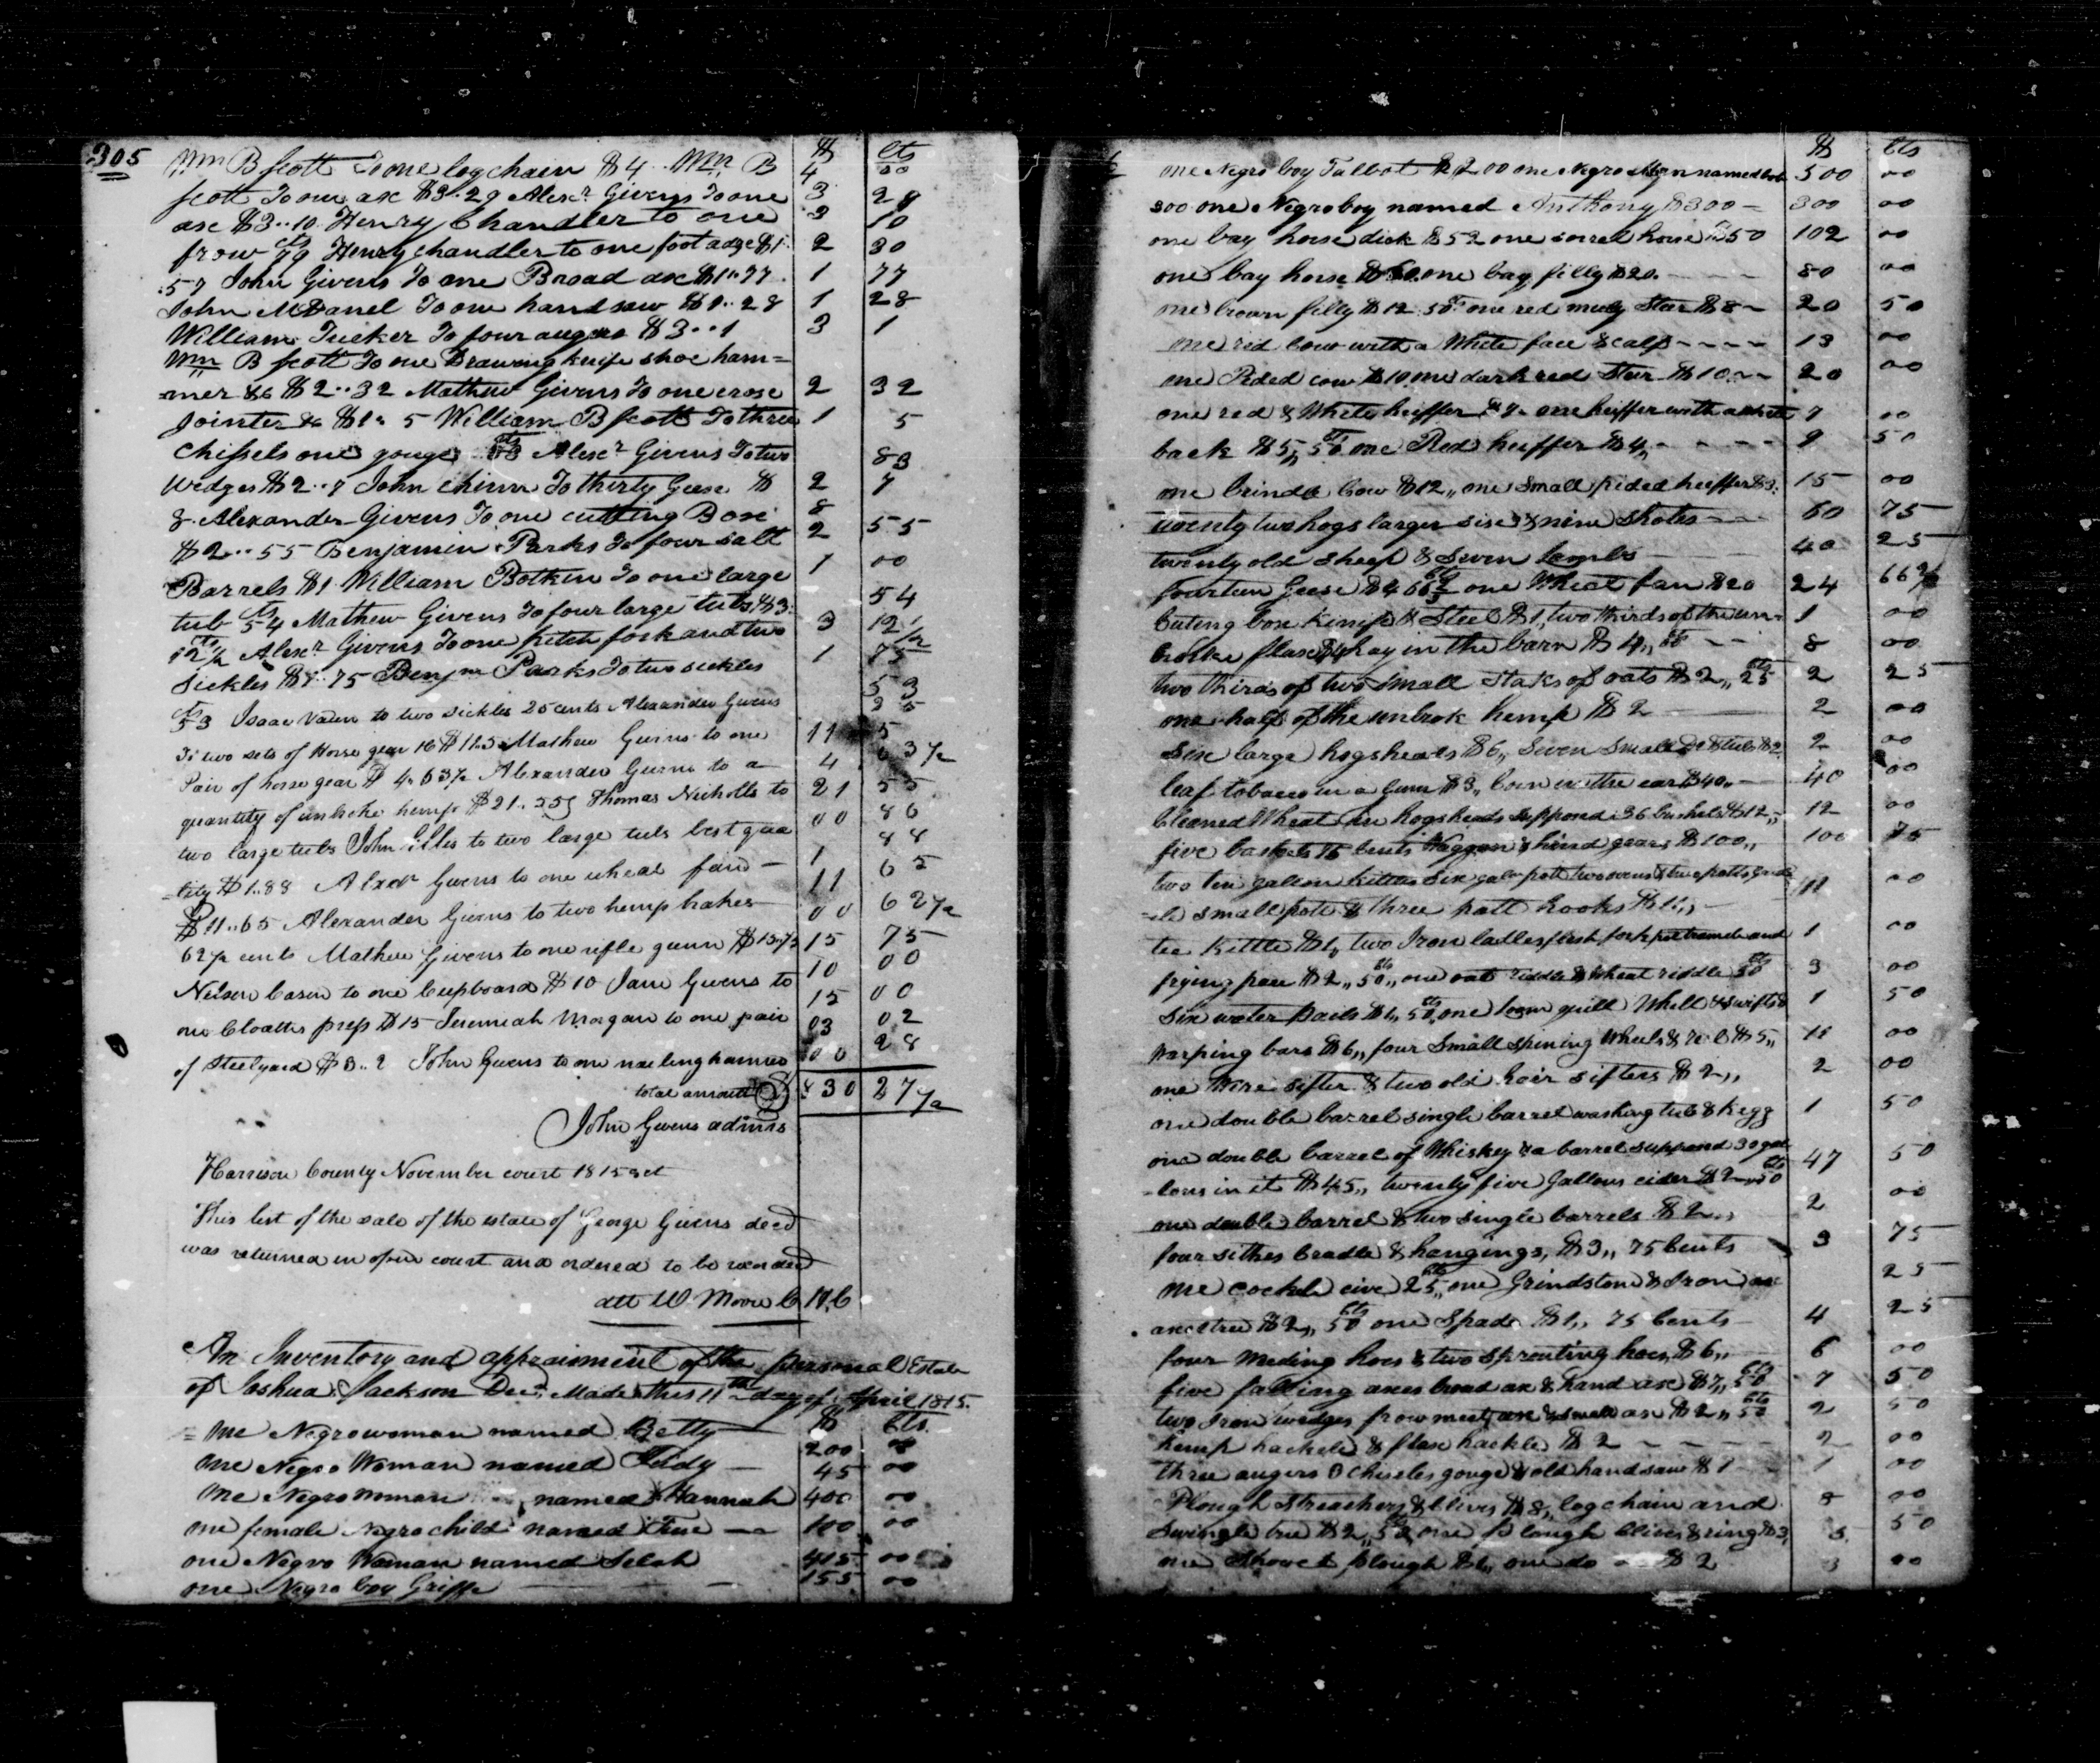 305
$ cts
Wm B Scott To one log chain $4 .. Wm B 4 00
Scott To one ax $3..29 Alexr Givens To one 3 29
axe $3..10 Henry Chandler to one 3 10
frow cts 79 Henry Chandler to one foot adge $1. 2 30
.57 John Givens To one Broad axe $1..77 1 77
John McDanel To one hand saw $1..28 1 28
William Tucker To four augers $3..1 3 1
Wm B Scott To one Drawing knife shoe ham=
=mer &c $2..32 Mathew Givens To one crose 2 32
Jointer &c $1.. 5 William B Scott To three 1 5
Chissels one gouge cts 83 Alexr Givens To two 83
Wedges $2..7 John Chinn To thirty Geese $ 2 7
8. Alexander Givens To one cutting Box 8
$2..55 Benjamin Parks To four salt 2 55
Barrels $1 William Botkin To one large 1 00
tub cts 54 Mathew Givens To four large tubs $3. 54
12½ Alexr Givens To one pitch fork and two 3 12½
Sickles $1..75 Benjm Parks To two sickles 1 75
cts 53 Isaac Vaden to two sickles 25 cents Alexander Givens 53 25
To two sets of Horse gear $11..5 Mathew Givens to one 11 5
Pair of horse gear $4..63½ Alexander Givens to a 4 63½
quantity of unbroke hemp $21..55 Thomas Nicholls to 21 55
two large tubs John Elles to two large tubs best qua 00 86
=lity $1..88 Alexr Givens to one wheat fan — 1 88
$11..65 Alexander Givens to two hemp brakes 11 65
62½ cents Mathew Givens to one rifle gunn $15.75 00 62½
15 75
Nelson Cason to one Cupboard $10 Jane Givens to 10 00
one Cloaths press $15 Jeremiah Morgan to one pair 15 00
of Steelyard $3..2 John Givens to one nailing hammer 03 02
00 28
total amount $ 830 27½
John Givens admr
Harrison County November court 1815 sct
This list of the sale of the estate of George Givens decd
was returned in open court and ordered to be recorded
att W. Moore C H C
An Inventory and appraisment of the personal Estate
of Joshua Jackson Decd Made this 11th day of April 1815.
$ Cts
one Negro woman named Betty 200 00
one Negro Woman named Judy — 45 00
one Negro woman named Hannah 400 00
one female Negro child named June — 100 00
one Negro Woman named Selah 415 00
one Negro boy Griffe — 155 00
$ Cts
one Negro boy Talbot $200 one Negro Man named Bob 500 00
300 one Negro boy named Anthony $300 — 300 00
one bay horse dick $52 one sorrel horse $50 102 00
one bay horse $60 one bay filly $20. 80 00
one brown filly $12..50 cts one red muly Stear $8 20 50
one red cow with a White face & calf 13 00
one Pided cow $10 one dark red Stear $10 20 00
one red & White heiffer $7. one heiffer with a white 7 00
back $5,, 50 cts one Red heiffer $4,, 9 50
one brinde Cow $12,, one small pided heiffer $3. 15 00
twenty two hogs larger sise & nine shotes 60 75
twenty old sheep & Seven lambs 40 25
fourteen Geese $4 66⅔ one Wheat fan $20 24 66⅔
Cuting box knife & Steel $1,, two thirds of the un= 1 00
broke flax $4 hay in the barn $4,, 8 00
two thirds of two small staks of oats $2,, 25 cts 2 25
one half of the unbrok hemp $2 2 00
six large hogsheads $6,, Seven small Do & tubs $2 2 00
leaf tobacco in a Gum $3,, Corn in the ear $40,, 40 00
Cleaned Wheat in hogsheads Supposed 36 bushels $12,, 12 00
five baskets 75 Cents Waggon & hind gears $100,, 100 75
two ten gallon kettles six galn pott two ovens & two potts,
small pott & three pott hooks $11,, 11 00
tee kittle $1,, two Iron ladles flesh fork pot tramele and 1 00
frying pan $2,, 50 cts,, one oat riddle & wheat riddle 50 cts 3 00
six water pails $1,, 50 cts, one loom quill Whell & swifts & 1 50
Warping bars $6,, four small spining Wheels & reel $5,, 11 00
one Wire sifter & two old hair sifters $2,, 2 00
one double barrel single barrel washing tub & kegg 1 50
one double barrel of Whiskey & a barrel supposed 30 gal
=lons in it $45,, twenty five Gallons cider $2,, 50 cts 47 50
one double barrel & two single barrels $2,, 2 00
four sithes Cradle & hangings, $3,, 75 Cents 3 75
one cockle cive 25 cts,, one Grindstone & Iron 25
axetree $2,, 50 cts one Spade $1,, 75 Cents 4 25
four weeding hoes & two sprouting hoes $6,, 6 00
five falling axes broad ax & hand axe $7,, 50 cts 7 50
two Iron wedges frow meet axe & small ax $2,, 50 cts 2 50
hemp hackele & flax hackle $2 2 00
three augers 3 Chiseles gouge & old handsaw $1 1 00
Plough Streachers & Clives $8,, log chain and 8 00
Swingle tree $2,, 50 one plough Clives & ring $3, 5 50
one Shovel plough $1,, one do $2 3 00